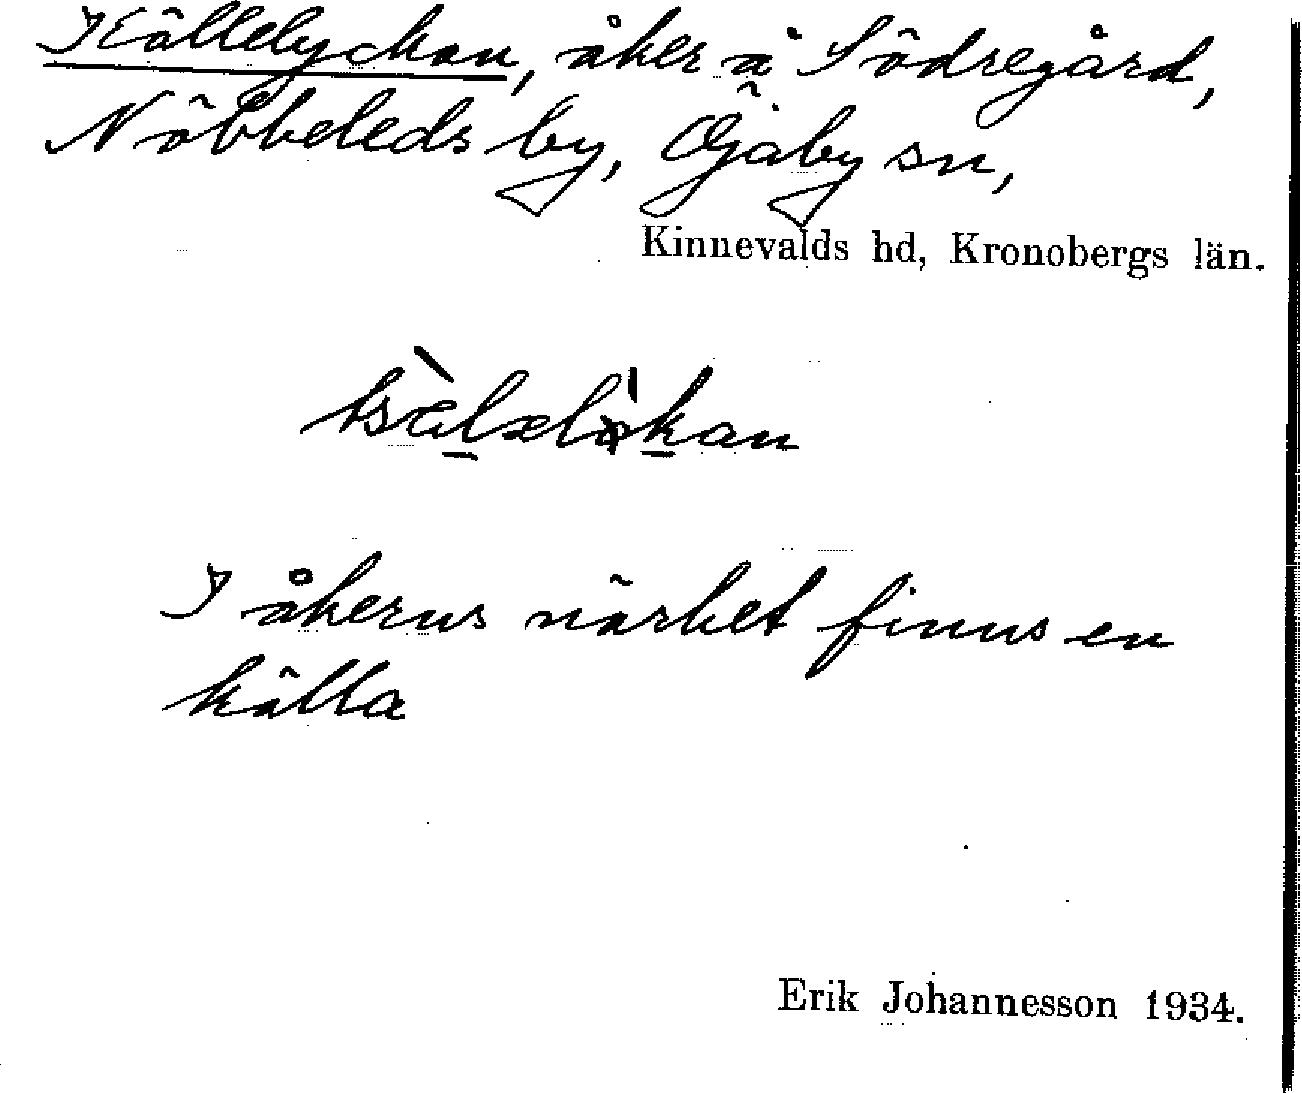 Källelyckan, åker å Södregård,
Nöbbeleds by, Öjaby sn,
Kinnevalds hd, Kronobergs län.
I åkerns närhet finns en
källa
Erik Johannesson 1934.